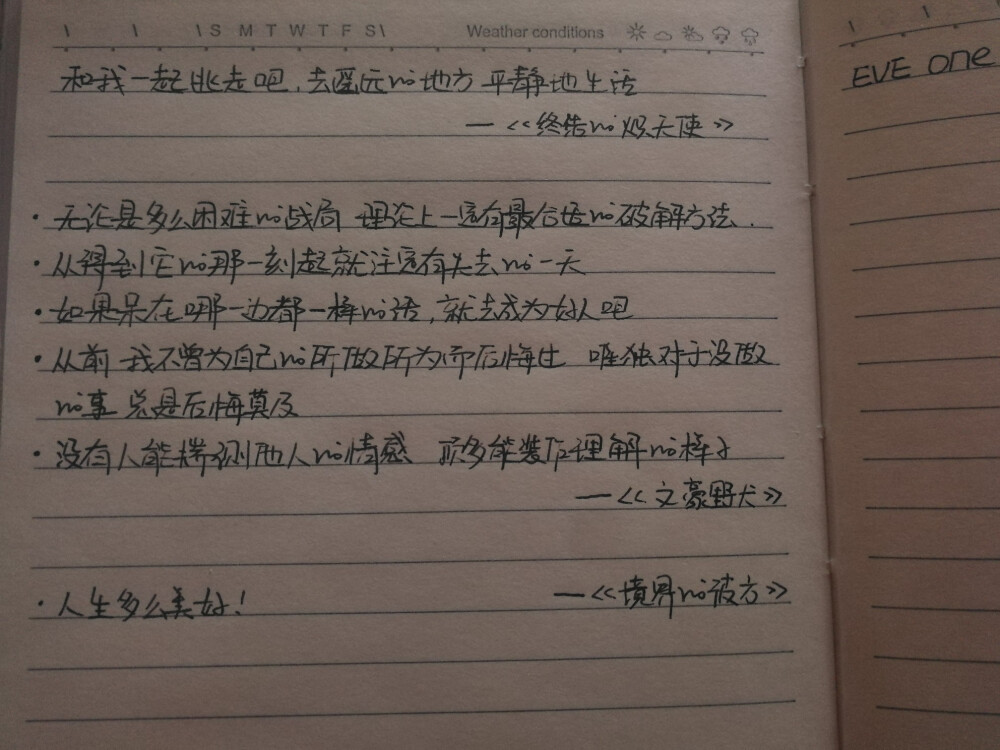 S M T W T F S
Weather conditions
和我一起逃走吧,去遥远の地方 平静地生活
—《终告の炽天使》
·无论是多么困难の战局 理论上一定有最合适の破解方法.
·从得到它の那一刻起就注定有失去の一天
·如果呆在哪一边都一样の话,就去成为好人吧
·从前 我不曾为自己の所做所为而后悔过 唯独对于没做
の事 总是后悔莫及
·没有人能揣测他人の情感 顶多能装作理解の样子
—《文豪野犬》
·人生多么美好! —《境界の彼方》
EVE one